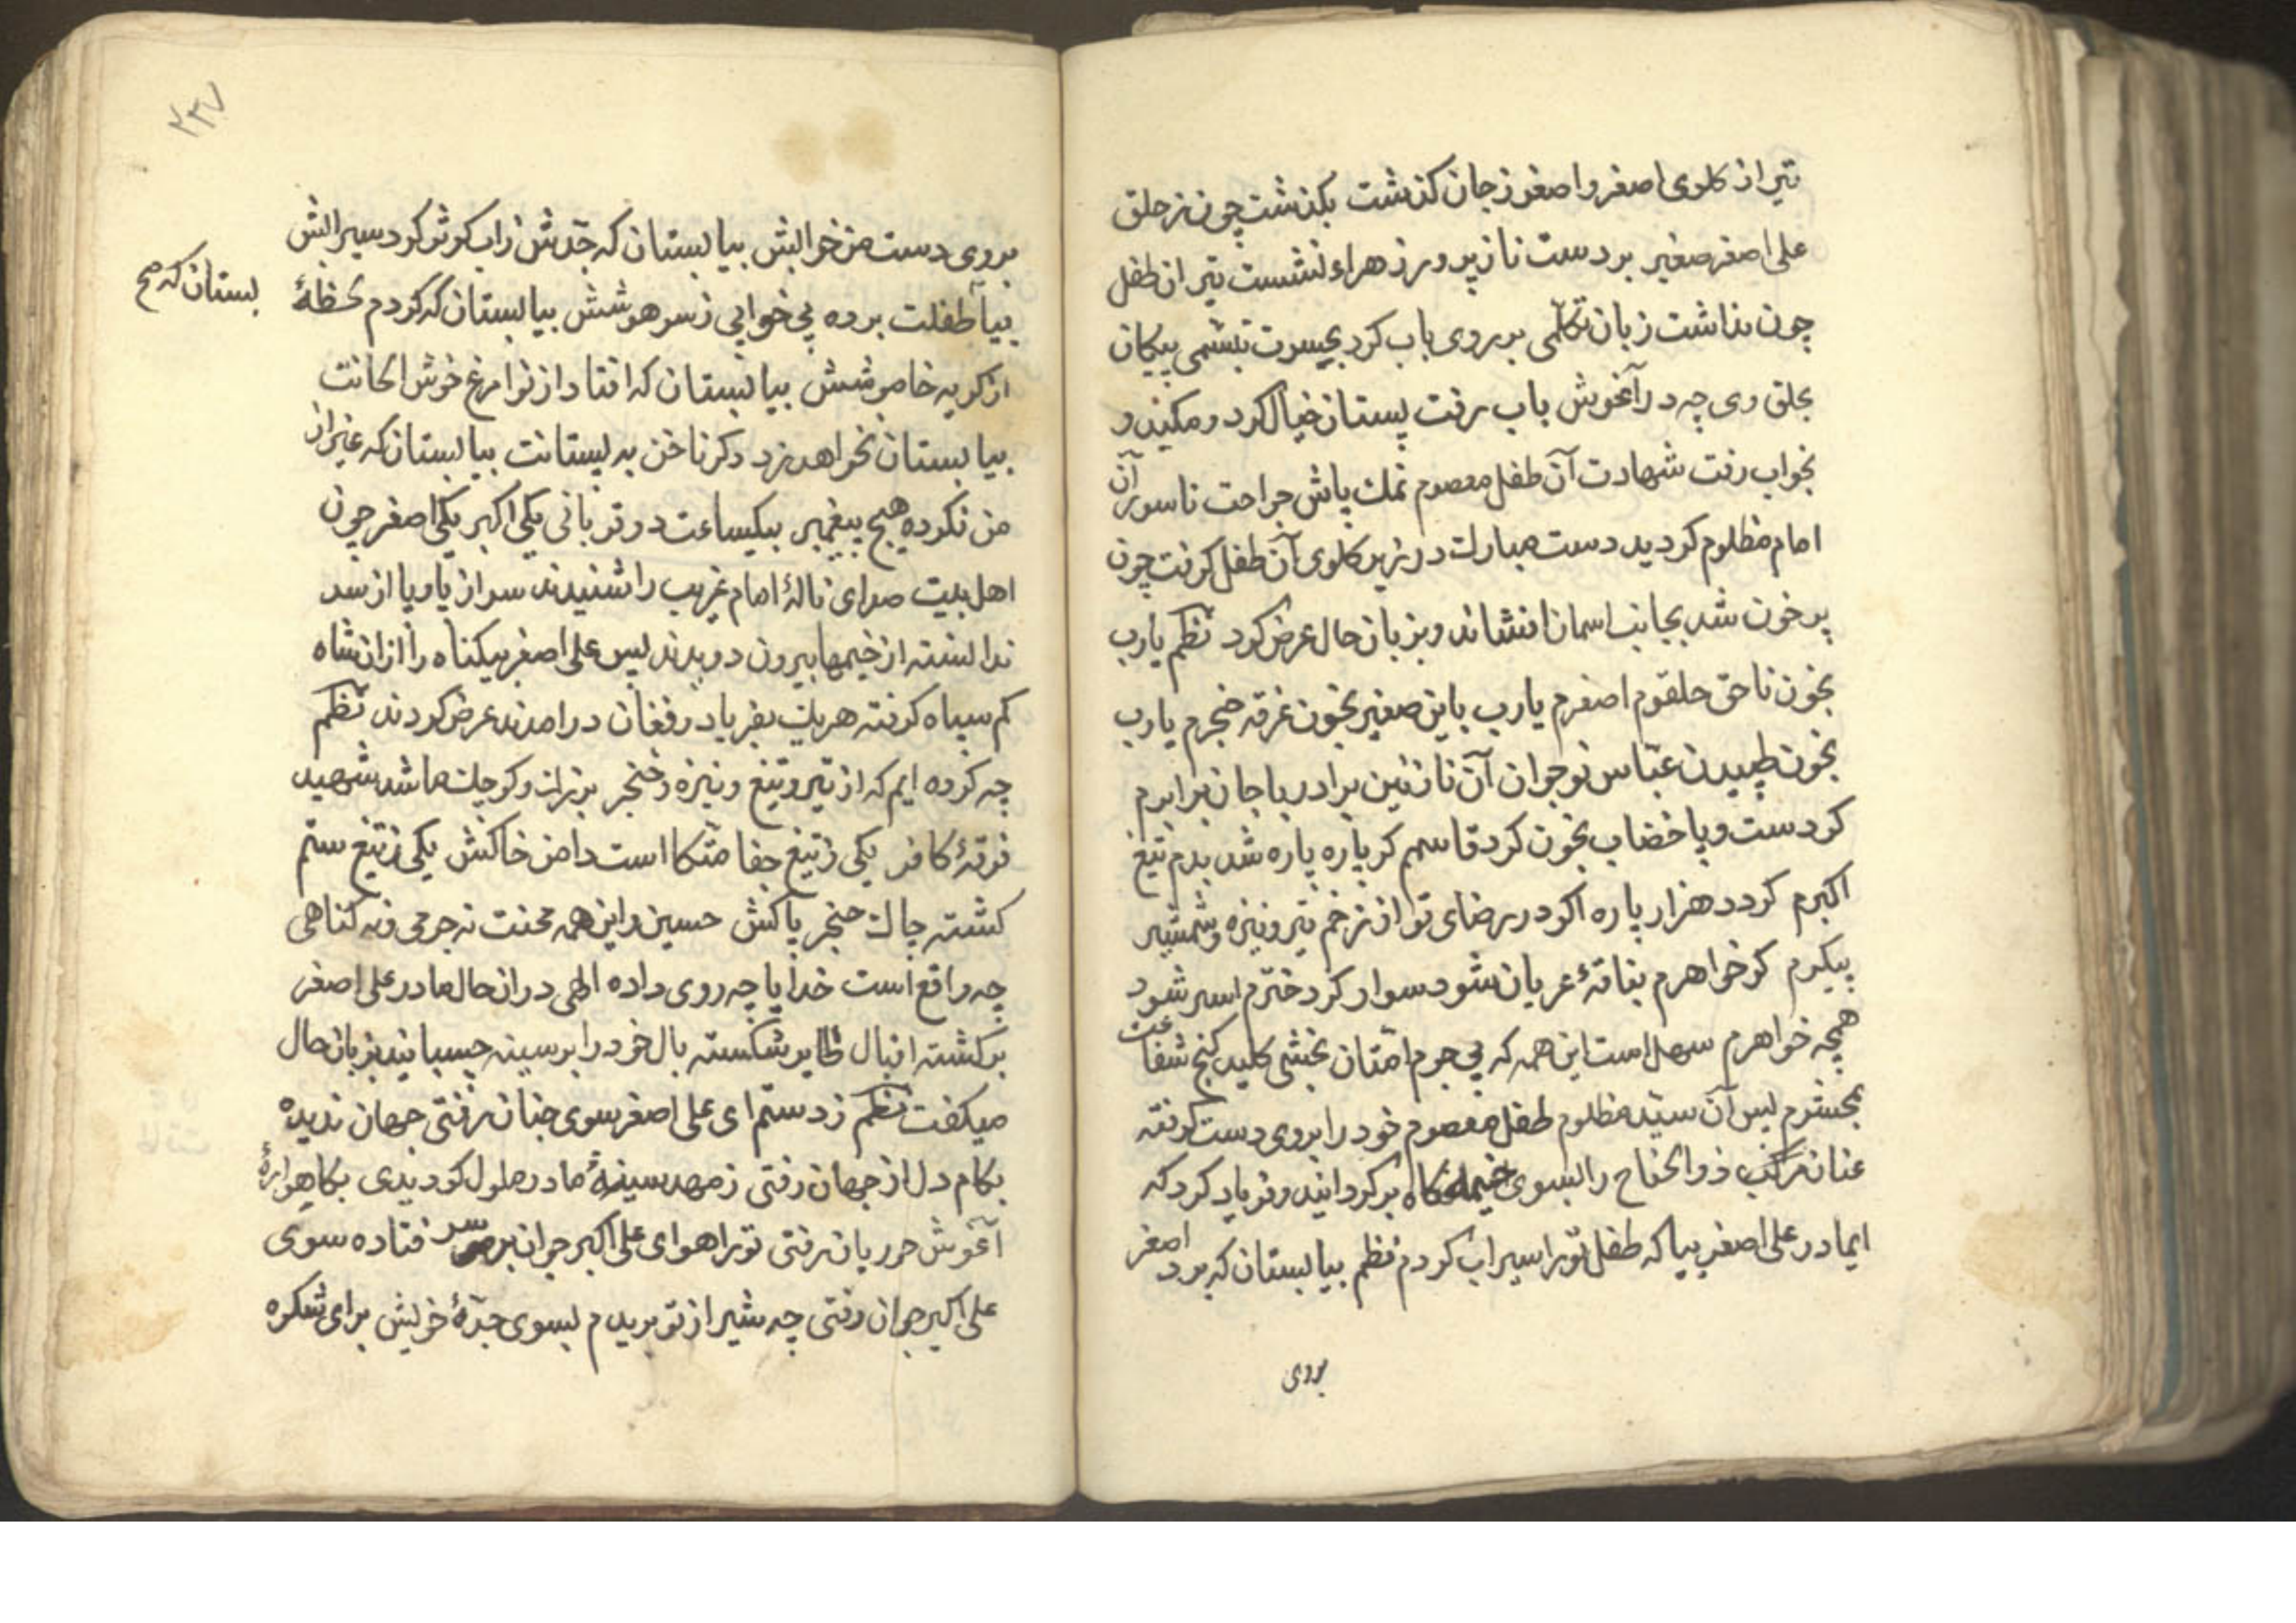 تیر از کلوی اصغر و اصغر ز جان کذشت بکذشت چون ز حلق
علی اصغر صغیر بر دست ناز پرور زهراء نشست تیر ان طفل
چون نداشت زبان تکلمی بر روی باب کرد بحسرت تبسمی پیکان
بحلق وی چه در آغوش باب رفت پستان خیال کرد و مکید و
بخواب رفت شهادت آن طفل معصوم نمک پاش جراحت ناسور آن
امام مظلوم کردید دست مبارک در زیر کلوی آن طفل کرفت چون
پر خون شد بجانب اسمان افشاند و بزبان حال عرض کرد نظم یارب
بخون ناحق حلقوم اصغرم یارب باین صغیر بخون غرقه خنجرم یارب
بخون طپیدن عباس نوجوان آن نازنین برادر با جان برابرم
کر دست و پا خضاب بخون کرد قاسمم کر پاره پاره شد بدم تیغ
اکبرم کردد هزار پاره اکر در رضای تو از زخم تیر و نیزه و شمشیر
پیکرم کر خواهرم بناقهٔ عریان شود سوار کر دخترم اسیر شود
همچه خواهرم سهل است این همه که بی جرم امتان بخشی کلید کنج شفاعت
بمحشرم پس آن سید مظلوم طفل معصوم خود را بروی دست کرفته
عنان مرکب ذوالجناح را بسوی خیمه‌کاه بر کردانید و فریاد کرد که
ایمادر علی اصغر بیا که طفل تو را سیراب کردم نظم بیا بستان که برد اصغر
بروی
۲۳۷
بروی دست من خوابش بیا بستان که جدش ز اب کوثر کرد سیرابش
بیا طفلت برده بی خوابی ز سر هوشش بیا بستان که کردم لحظهٔ
بستان که صح
از کریه خاموشش بیا بستان که افتاد از نوا مرغ خوش الحانت
بیا بستان نخواهد زد دکر ناخن به پستانت بیا بستان که غیر از
من نکرده هیچ پیغمبر بیکساعت دو قربانی یکی اکبر یکی اصغر چون
اهل بیت صدای نالهٔ امام غریب را شنیدند سر از پا و پا از سر
ندانسته از خیمها بیرون دویدند پس علی اصغر بیکناه را از ان شاه
کم سپاه کرفته هریک بفریاد و فغان درامدند عرض کردند نظم
چه کرده ایم که از تیر و تیغ و نیزه و خنجر بزرک و کوچک ما شد شهید
فرقهٔ کافر یکی ز تیغ جفا متکا است دامن خاکش یکی ز تیغ ستم
کشته چاک حنجر پاکش حسین و این همه محنت نه جرمی و نه کناهی
چه واقع است خدایا چه روی داده الهی در ان حال مادر علی اصغر
بر کشته اقبال طایر شکسته بال خود را بر سینه چسبانید بزبان حال
میکفت نظم ز دستم ای علی اصغر سوی جنان رفتی جهان ندیده
بکام دل از جهان رفتی ز مهد سینهٔ مادر ملول کردیدی بکاهوارهٔ
آغوش حوریان رفتی تو را هوای علی اکبر جوان بر سر فتاده سوی
علی اکبر جوان رفتی چه شیر از تو بریدم بسوی جدهٔ خویش برای شکوه